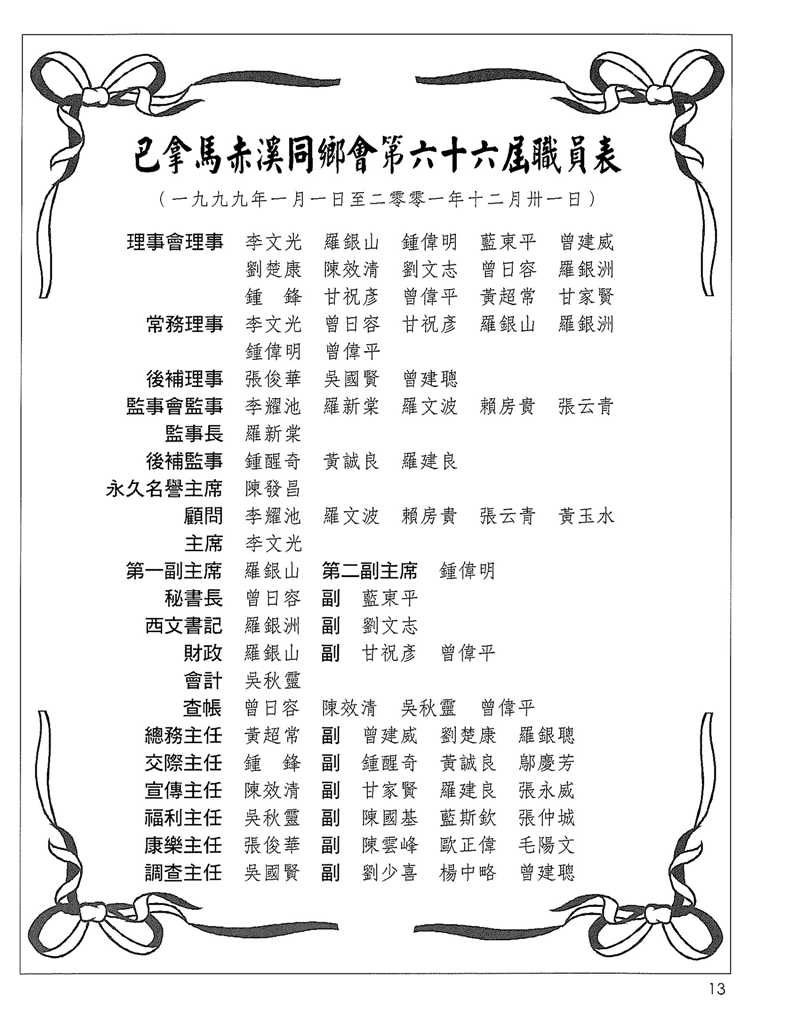 巴拿馬赤溪同鄉會第六十六屆職員表
（一九九九年一月一日至二零零一年十二月卅一日）
理事會理事 李文光 羅銀山 鍾偉明 藍東平 曾建威
劉楚康 陳效清 劉文志 曾日容 羅銀洲
鍾 鋒 甘祝彥 曾偉平 黃超常 甘家賢
常務理事 李文光 曾日容 甘祝彥 羅銀山 羅銀洲
鍾偉明 曾偉平
後補理事 張俊華 吳國賢 曾建聰
監事會監事 李耀池 羅新棠 羅文波 賴房貴 張云青
監事長 羅新棠
後補監事 鍾醒奇 黃誠良 羅建良
永久名譽主席 陳發昌
顧問 李耀池 羅文波 賴房貴 張云青 黃玉水
主席 李文光
第一副主席 羅銀山 第二副主席 鍾偉明
秘書長 曾日容 副 藍東平
西文書記 羅銀洲 副 劉文志
財政 羅銀山 副 甘祝彥 曾偉平
會計 吳秋靈
查帳 曾日容 陳效清 吳秋靈 曾偉平
總務主任 黃超常 副 曾建威 劉楚康 羅銀聰
交際主任 鍾 鋒 副 鍾醒奇 黃誠良 鄔慶芳
宣傳主任 陳效清 副 甘家賢 羅建良 張永威
福利主任 吳秋靈 副 陳國基 藍斯欽 張仲城
康樂主任 張俊華 副 陳雲峰 歐正偉 毛陽文
調查主任 吳國賢 副 劉少喜 楊中略 曾建聰
13